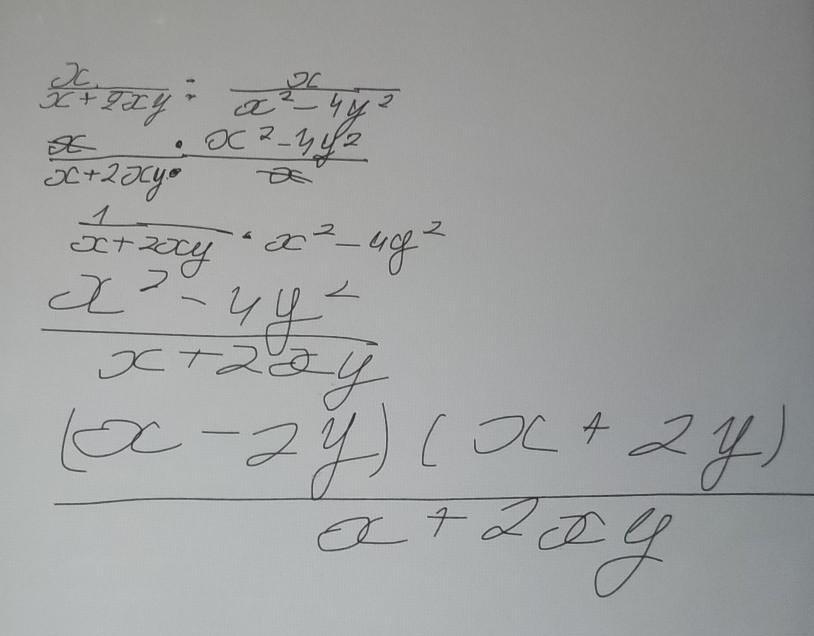 x/(x+2xy) : x/(x²-4y²)
x/(x+2xy) · (x²-4y²)/x
1/(x+2xy) · x²-4y²
(x²-4y²)/(x+2xy)
(x-2y)(x+2y)/(x+2xy)